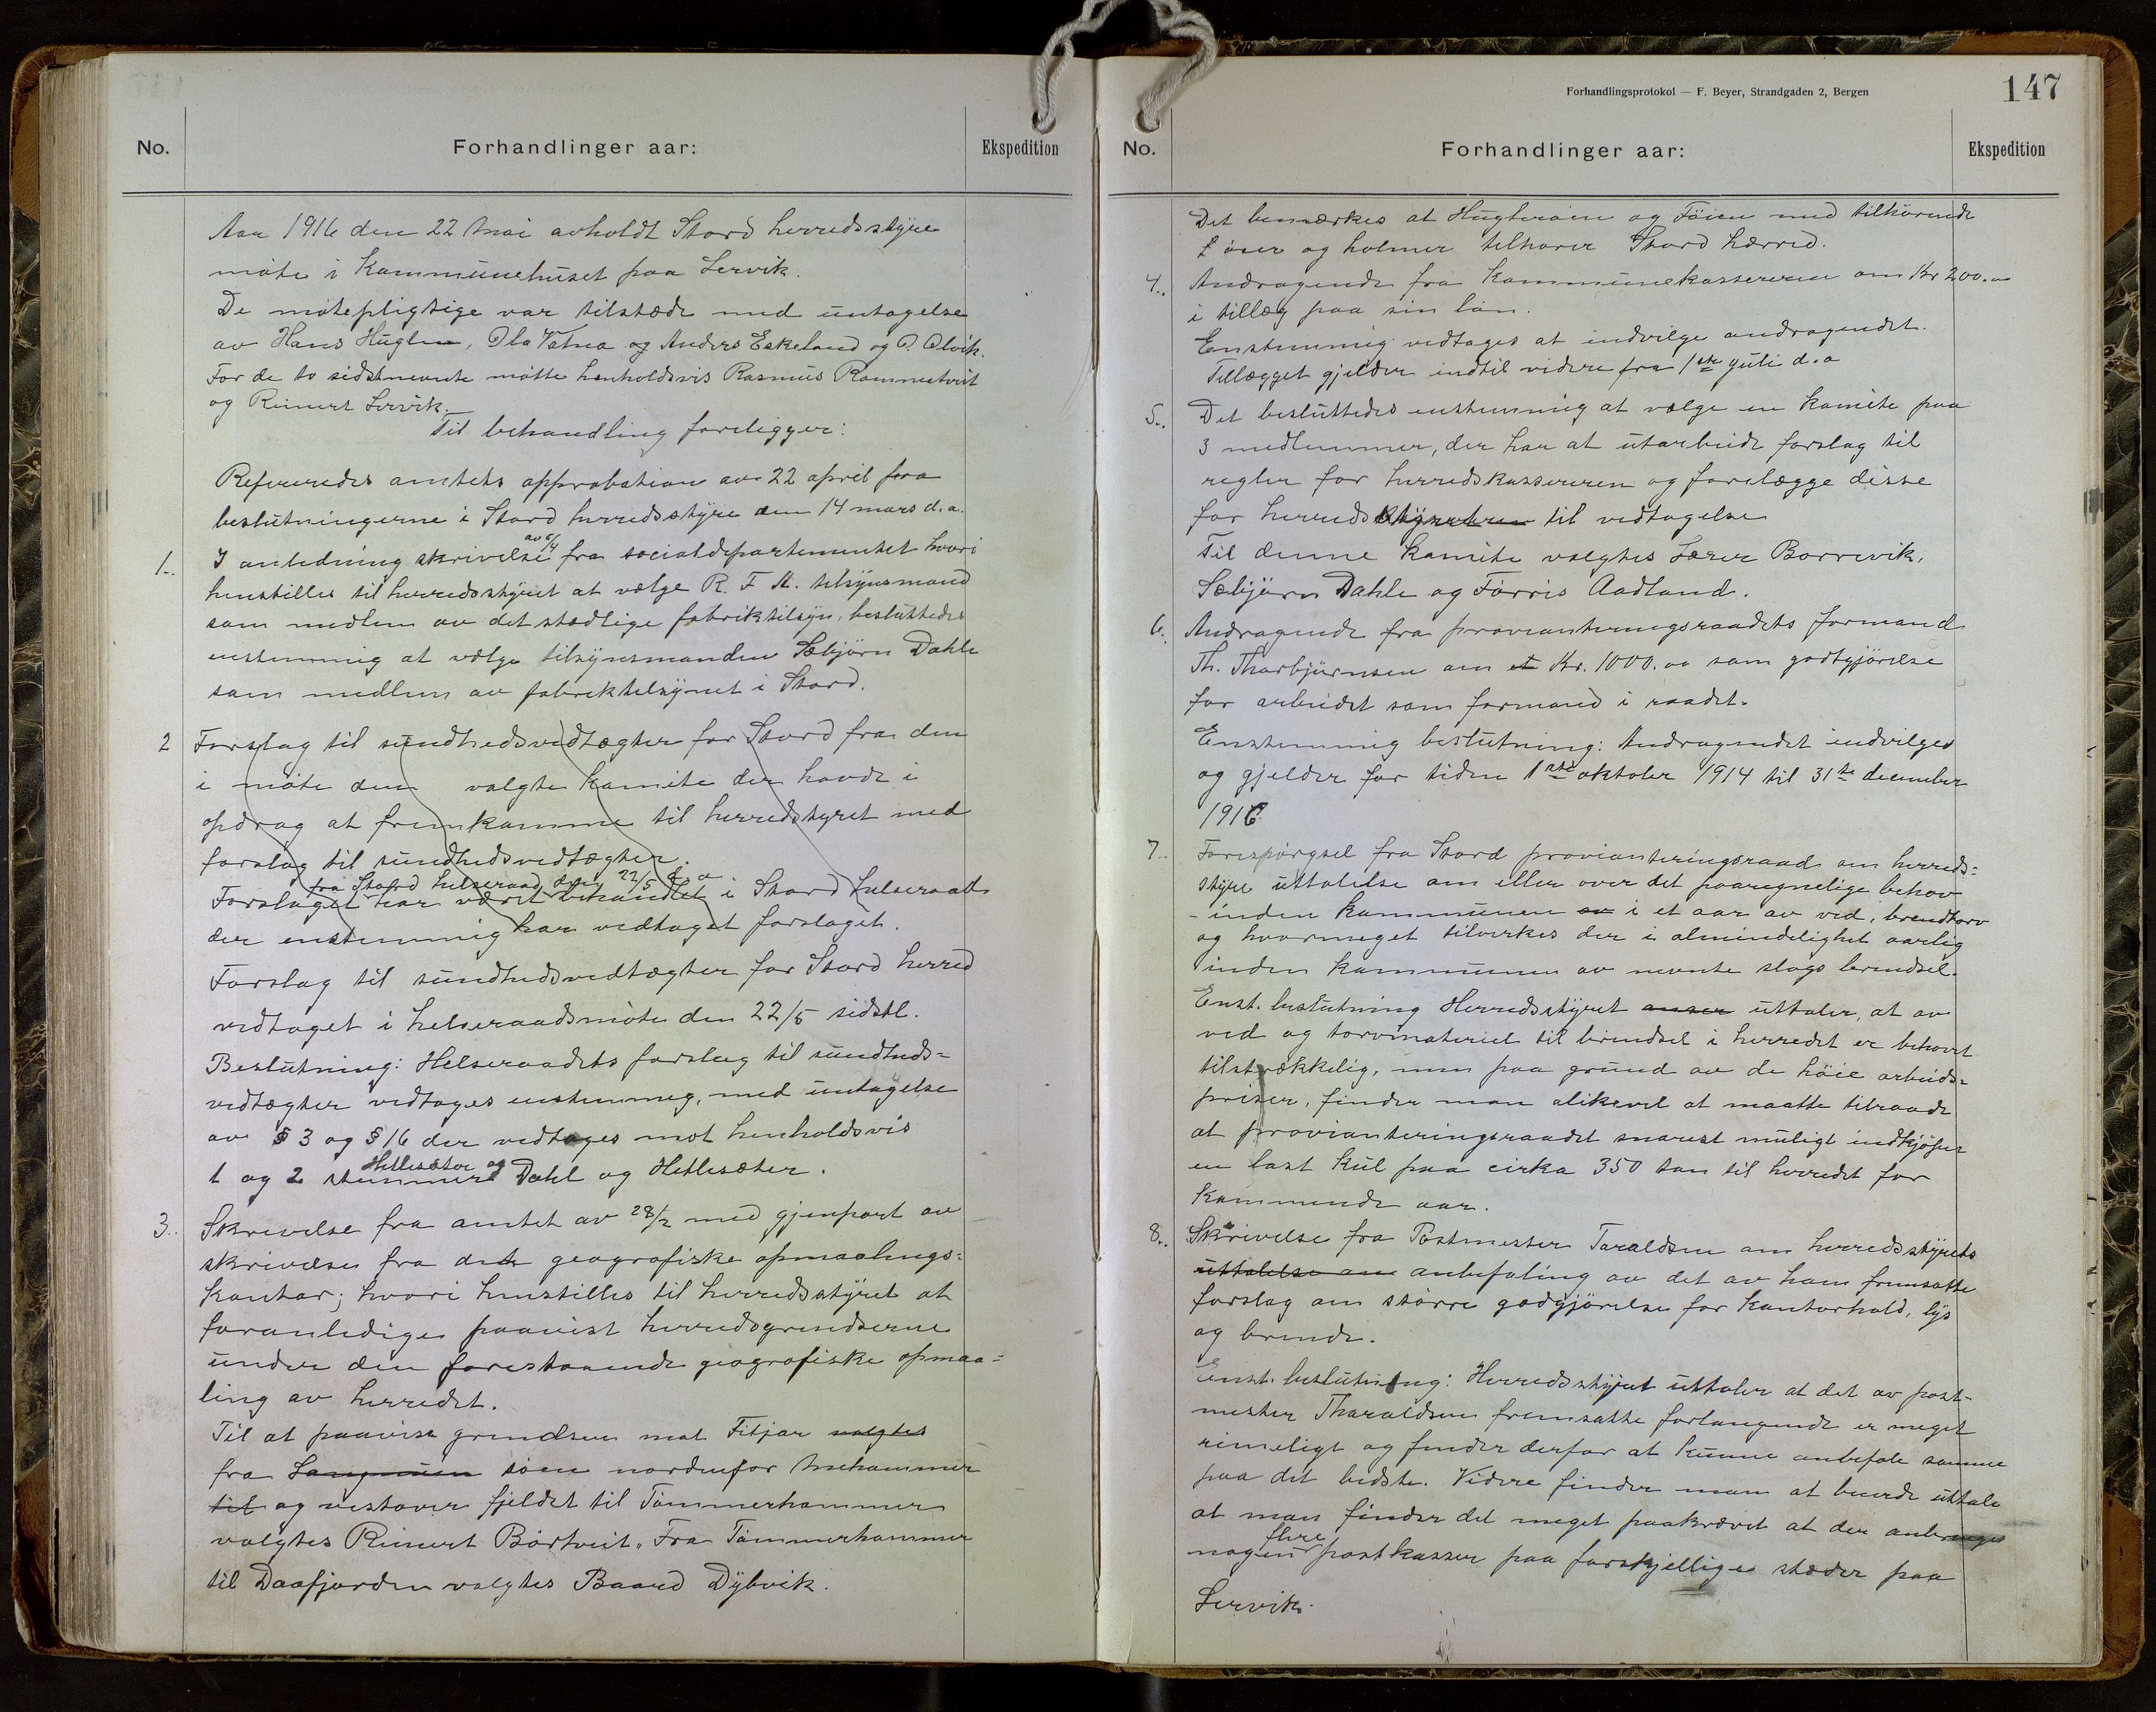 No.
Forhandlinger aar:
Ekspedition
Aar 1916 den 22 Mai avholdt Stord herredsstyre
møte i Kommunehuset paa Lervik.
De møtepligtige var tilstæde med untagelse
av Hans Huglen, Ola Vatna og Anders Eskeland og O. Alvik.
For de to sidstnevnte møtte henholdsvis Rasmus Rommetveit
og Reinert Lervik.
Til behandling foreligger:
Refereredes amtets approbation av 22 april fra
beslutningerne i Stord herredsstyre den 14 mars d.a.
1.. I anledning skrivelse av 5/4 fra socialdepartementet hvori
henstilles til herredsstyret at vælge R. F. A. tilsynsmand
som medlem av det stedlige fabriktilsyn, besluttedes
enstemmig at vælge tilsynsmanden Sæbjørn Dahle
som medlem av fabriktilsynet i Stord.
2 Forslag til sundhedsvedtægter for Stord fra den
i møte den valgte komite der havde i
opdrag at fremkomme til herredstyret med
forslag til sundhedsvedtægter.
fra Stord helseraad den 22/5 d a
Forslaget har været behandlet i Stord helseraad
der enstemmig har vedtaget forslaget.
Forslag til sundhedsvedtægter for Stord herred
vedtaget i helseraadsmøte den 22/5 sidstl.
Beslutning: Helseraadets forslag til sundheds=
vedtægter vedtages enstemmig, med untagelse
av § 3 og § 16 der vedtages mot henholdsvis
1 og 2 stemmer Hetlesæter og Dahl og Hetlesæter.
3.. Skrivelse fra amtet av 28/2 med gjenpart av
skrivelse fra den geografiske opmaalings=
kontor; hvori henstilles til herredsstyret at
foranlediges paavist herredsgrendserne
under den forestaaende geografiske opmaa=
ling av herredet.
Til at paavise grendsen mot Fitjar valgtes
fra Langmuen søen nordenfor Mehammer
til og vestover fjeldet til Tømmerhammer
valgtes Reinert Børtveit. Fra Tømmerhammer
til Daafjorden valgtes Baard Dybvik.
Forhandlingsprotokol — F. Beyer, Strandgaden 2, Bergen
147
No.
Forhandlinger aar:
Ekspedition
Det bemærkes at Hugleroien og Föien med tilhörende
öer og holmer tilhører Stord hærred.
4.. Andragende fra Kommunekassereren om Kr 200.00
i tillæg paa sin løn.
Enstemmig vedtages at indvilge andragendet.
Tillægget gjelder indtil videre fra 1ste juli d.a
5.. Det besluttedes enstemmig at vælge en komite paa
3 medlemmer, der har at utarbeide forslag til
regler for herredskassereren og forelægge disse
for herredsstyret til vedtagelse
Til denne komite valgtes Lærer Borrevik,
Sæbjörn Dahle og Førris Aadland.
6.. Andragende fra provianteringsraadets formand
Th. Thorbjørnsen om et Kr. 1000.00 som godtgjörelse
for arbeidet som formand i raadet.
Enstemmig beslutning: Andragendet indvilges
og gjelder for tiden 1ste oktober 1914 til 31te december
1916.
7.. Forespørgsel fra Stord provianteringsraad om herreds=
styre uttalelse om eller over det paaregnelige behov
inden kommunen av i et aar av ved, brendtorv
og hvormeget tilvirkes der i almindelighet aarlig
inden kommunen av nevnte slags brendsel.
Enst. beslutning Herredsstyret anser uttaler, at av
ved og torvmateriel til brendsel i herredet er behovet
tilstrækkelig, men paa grund av de høie arbeids=
priser, finder man alikevel at maatte tilraade
at provianteringsraadet snarest muligt indkjøper
en last kul paa cirka 350 ton til herredet for
kommende aar.
8.. Skrivelse fra Postmester Taraldsen om herredsstyrets
uttalelse om anbefaling av det av ham fremsatte
forslag om större godgjörelse for kontorhold, lys
og brende.
Enst. beslutning: Herredsstyret uttaler at det av post-
mester Tharaldsen fremsatte forlangende er meget
rimeligt og finder derfor at kunne anbefale samme
paa det bedste. Videre finder man at burde uttale
at man finder det meget paakrævet at der anbringes
nogen flere postkasser paa forskjellige stæder paa
Lervik.